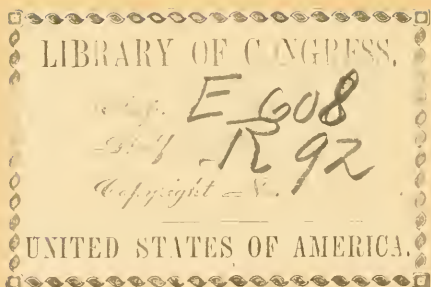 LIBRARY OF CONGRESS.
Chap. E 608
Shelf R 92
Copyright No.
UNITED STATES OF AMERICA.